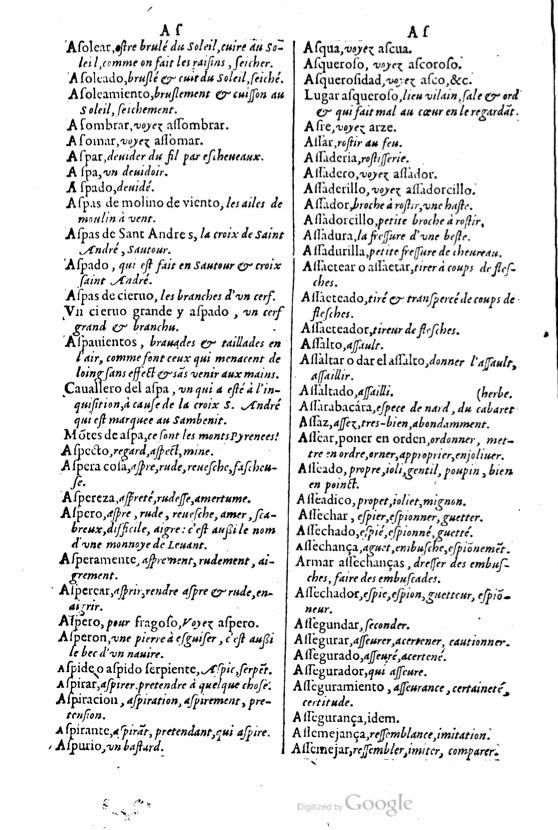 A ſ
Aſolear, eſtre brulé du Soleil, cuire au So-
leil, comme on fait les raiſins, ſeicher.
Aſoleado, bruſlé & cuit du Soleil, ſeiché.
Aſoleamiento, bruſlement & cuiſſon au
Soleil, ſeichement.
Aſombrar, voyez aſſombrar.
Aſomar, voyez aſſomar.
Aſpar, deuider du fil par eſcheueaux.
Aſpa, vn deuidoir.
Aſpado, deuidé.
Aſpas de molino de viento, les ailes de
moulin à vent.
Aſpas de Sant Andres, la croix de Saint
André, Sautour.
Aſpado, qui eſt fait en Sautour & croix
ſaint André.
Aſpas de cieruo, les branches d'vn cerf.
Vn cieruo grande y aſpado, vn cerf
grand & branchu.
Aſpauientos, brauades & taillades en
l'air, comme font ceux qui menacent de
loing ſans effect & sãs venir aux mains.
Cauallero del aſpa, vn qui a eſté à l'in-
quiſition, à cauſe de la croix S. André
qui eſt marquee au Sambenit.
Mõtes de aſpa, ce ſont les monts Pyrenees!
Aſpecto, regard, aſpect, mine.
Aſpera coſa, aſpre, rude, reueſche, faſcheu-
ſe.
Aſpereza, aſpreté, rudeſſe, amertume.
Aſpero, aſpre, rude, reueſche, amer, ſca-
breux, difficile, aigre: c'eſt außi le nom
d'vne monnoye de Leuant.
Aſperamente, aſprement, rudement, ai-
grement.
Aſpercar, aſprir, rendre aſpre & rude, en-
aigrir.
Aſpero, pour fragoſo, Voyez aſpero.
Aſperon, vne pierre à eſguiſer, c'eſt außi
le bec d'vn nauire.
Aſpide o aſpido ſerpiente, Aſpic, ſerpẽt.
Aſpirar, aſpirer, pretendre à quelque choſe.
Aſpiracion, aſpiration, aſpirement, pre-
tenſion.
Aſpirante, aſpirãt, pretendant, qui aſpire.
Aſpurio, vn baſtard.
A ſ
Aſqua, voyez aſcua.
Aſqueroſo, voyez aſcoroſo.
Aſqueroſidad, voyez aſco, &c.
Lugar aſqueroſo, lieu vilain, ſale & ord
& qui fait mal au cœur en le regardãt.
Aſre, voyez arze.
Aſſar, roſtir au feu.
Aſſaderia, roſtiſſerie.
Aſſadero, voyez aſſador.
Aſſaderillo, voyez aſſadorcillo.
Aſſador, broche à roſtir, vne haſte.
Aſſadorcillo, petite broche à roſtir,
Aſſadura, la freſſure d'vne beſte.
Aſſadurilla, petite freſſure de cheureau.
Aſſaetear o aſſaetar, tirer à coups de fleſ-
ches.
Aſſaeteado, tiré & tranſpercé de coups de
fleſches.
Aſſaeteador, tireur de fleſches.
Aſſalto, aſſault.
Aſſaltar o dar el aſſalto, donner l'aſſault,
aſſaillir.
Aſſaltado, aſſailli. (herbe.
Aſſarabacára, eſpece de nard, du cabaret
Aſſaz, aſſez, tres-bien, abondamment.
Aſſear, poner en orden, ordonner, met-
tre en ordre, orner, approprier, enjoliuer.
Aſſeado, propre, joli, gentil, poupin, bien
en poinct.
Aſſeadico, propet, joliet, mignon.
Aſſechar, eſpier, eſpionner, guetter.
Aſſechado, eſpié, eſpionné, guetté.
Aſſechança, aguet, embuſche, eſpionemẽt.
Armar aſſechanças, dreſſer des embuſ-
ches, faire des embuſcades.
Aſſechador, eſpie, eſpion, guetteur, eſpiõ-
neur.
Aſſegundar, ſeconder.
Aſſegurar, aſſeurer, acertener, cautionner.
Aſſegurado, aſſeuré, acertené.
Aſſegurador, qui aſſeure.
Aſſeguramiento, aſſeurance, certaineté,
certitude.
Aſſegurança, idem.
Aſſemejança, reſſemblance, imitation.
Aſſemejar, reſſembler, imiter, comparer.
Digitized by Google